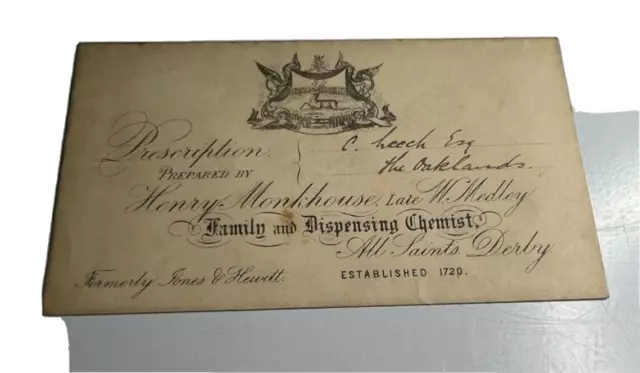 Prescription.
C. Leech Esq
The Oaklands.
PREPARED BY
Henry Monkhouse, Late W. Medley
Family and Dispensing Chemist,
All Saints, Derby
Formerly Jones & Hewitt.
ESTABLISHED 1720.